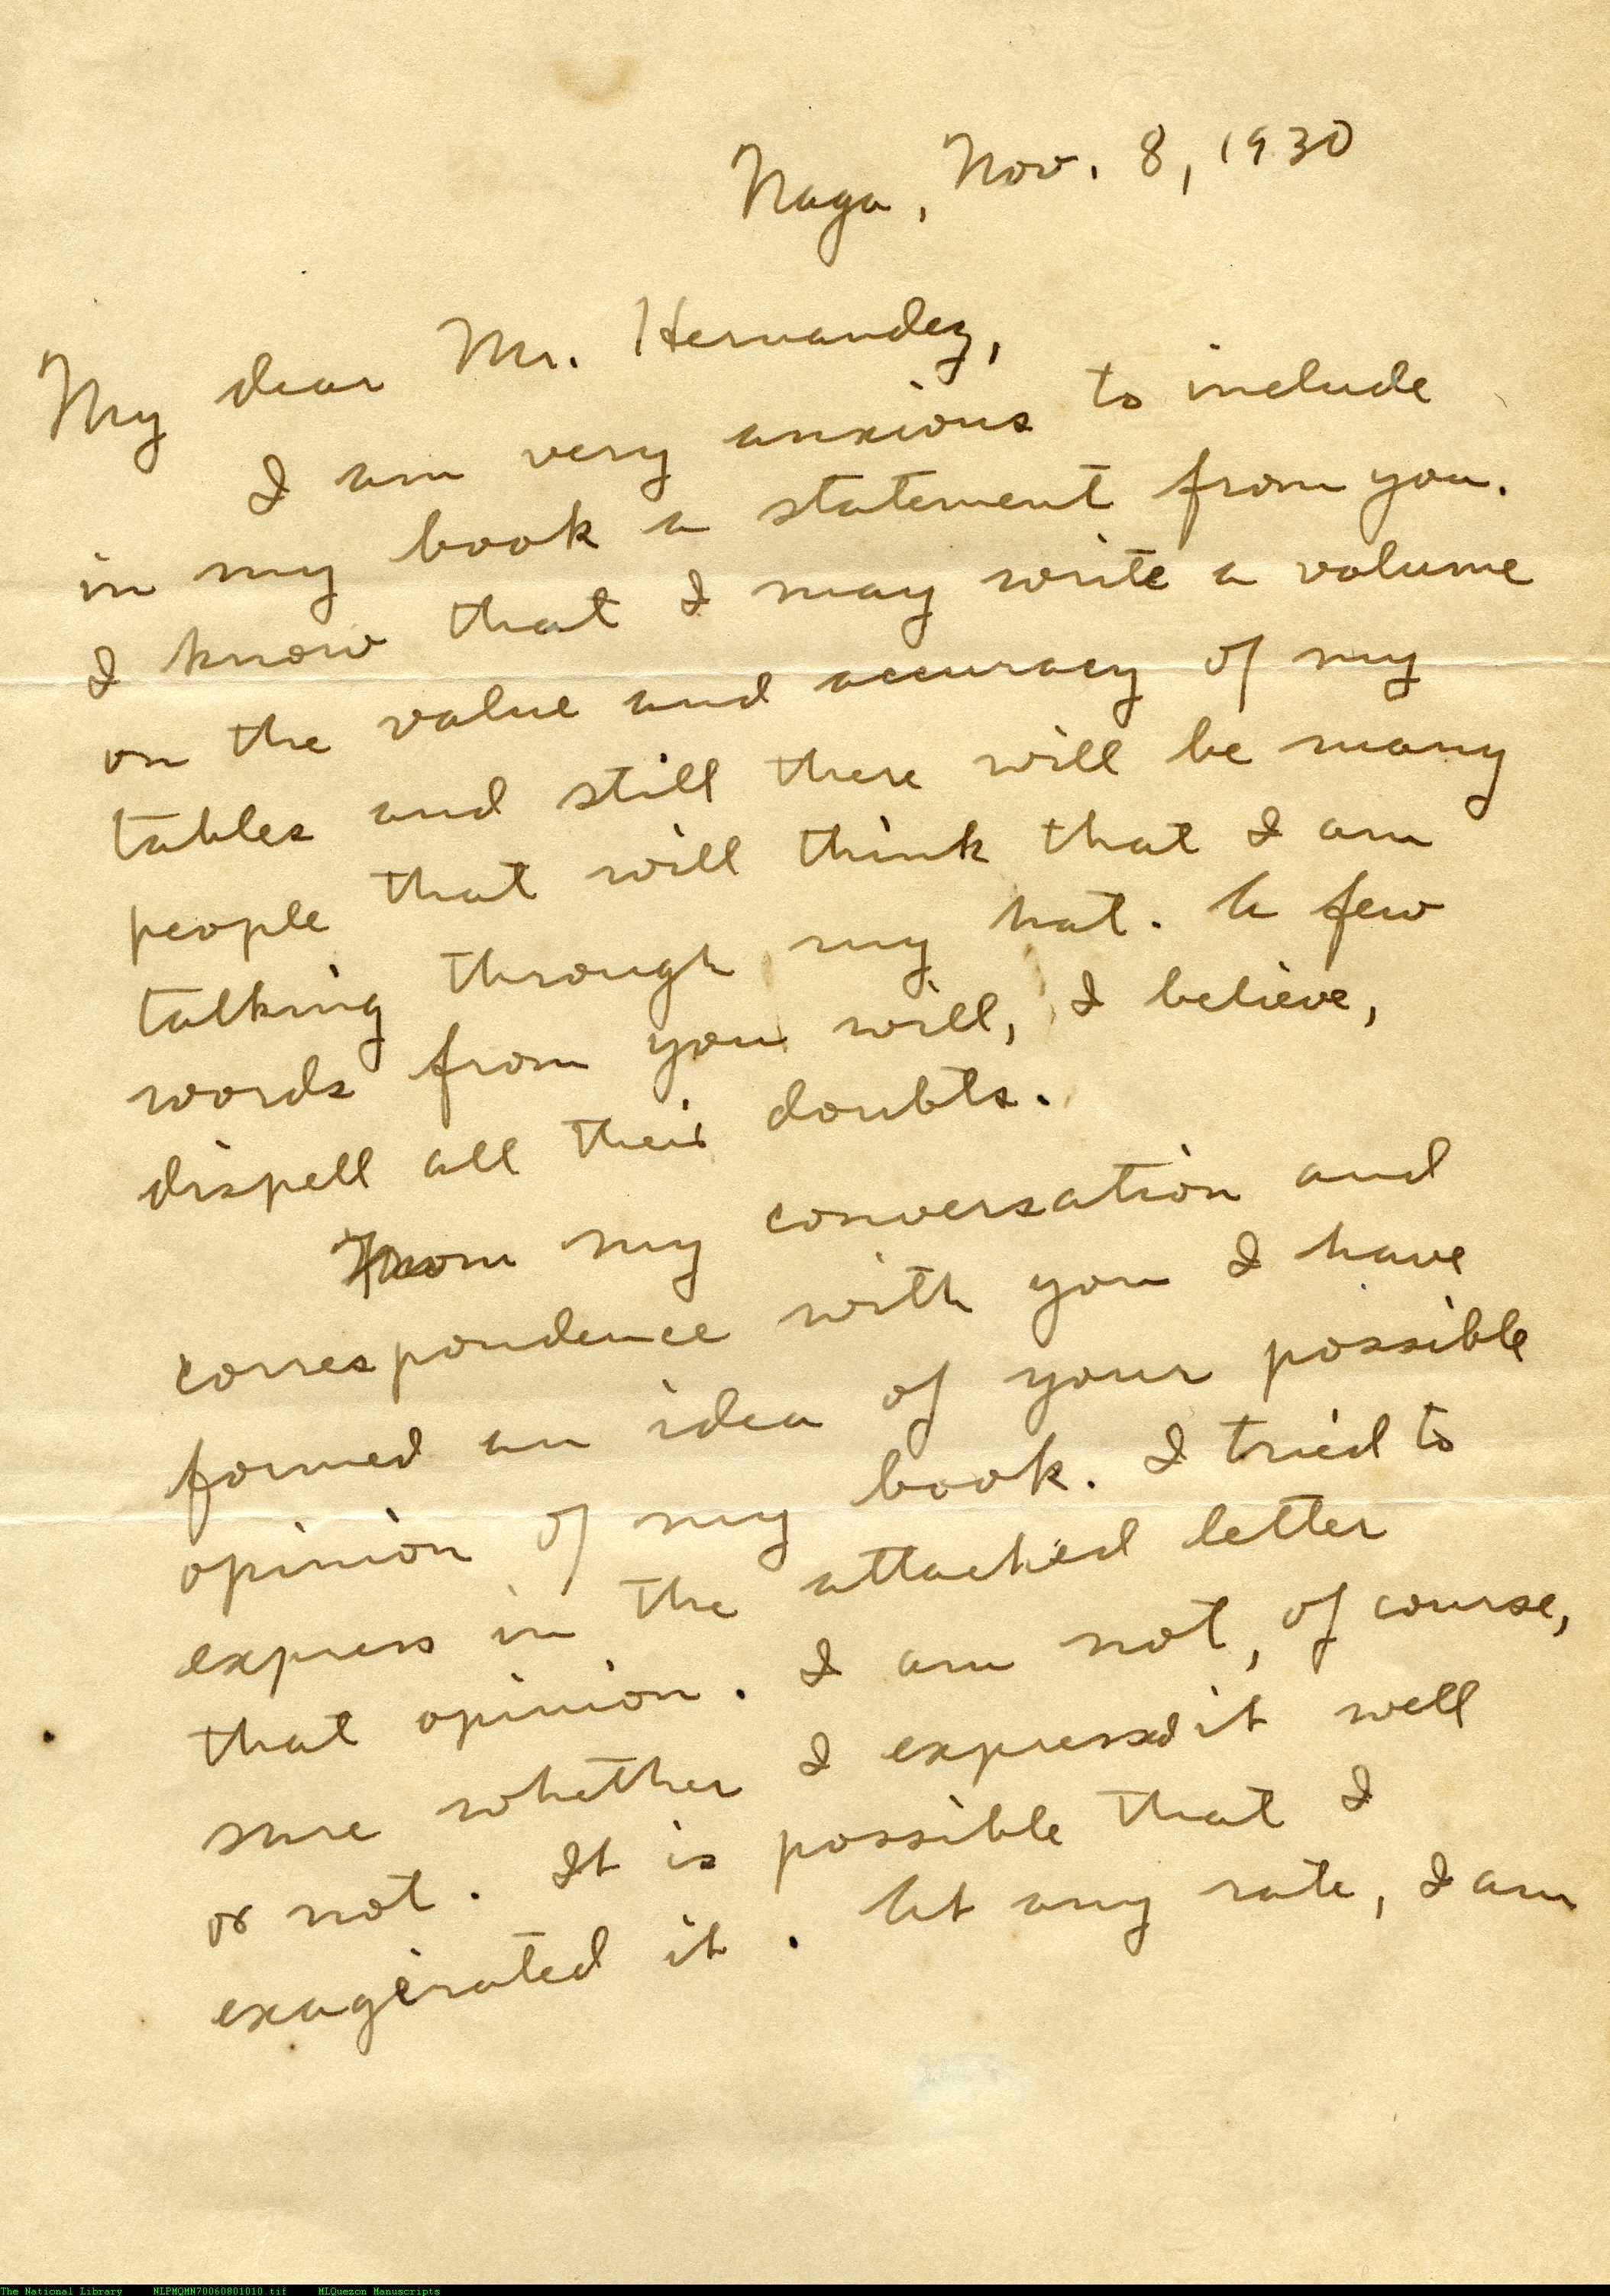 Naga, Nov. 8, 1930
My dear Mr. Hernandez,
I am very anxious to include
in my book a statement from you.
I know that I may write a volume
on the value and accuracy of my
tables and still there will be many
people that will think that I am
talking through my hat. A few
words from you will, I believe,
dispell all their doubts.
From my conversation and
correspondence with you I have
formed an idea of your possible
opinion of my book. I tried to
express in the attached letter
that opinion. I am not, of course,
sure whether I expressed it well
or not. It is possible that I
exagerated it. At any rate, I am
The National Library NLPMQMN70060801010.tif MLQuezon Manuscripts